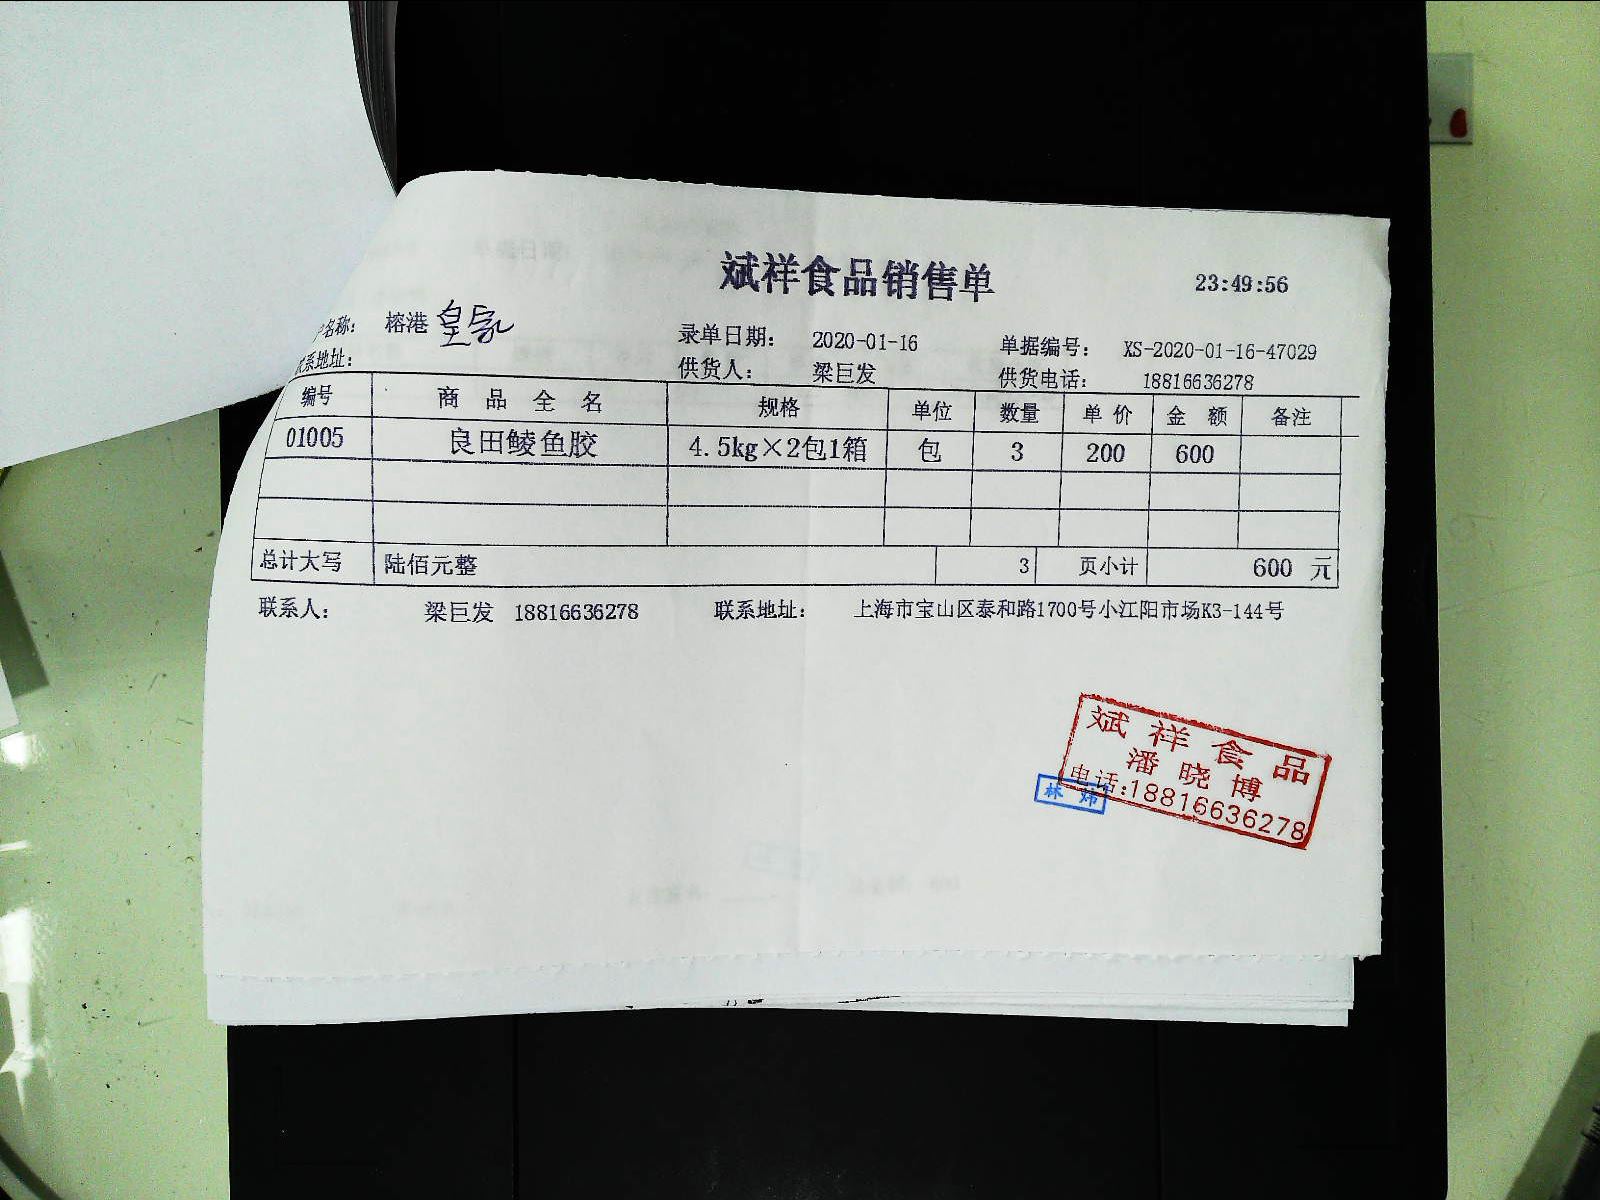 斌祥食品销售单 23:49:56
户名称： 榕港 皇家 录单日期： 2020-01-16 单据编号： XS-2020-01-16-47029
联系地址： 供货人： 梁巨发 供货电话： 18816636278
编号 商品全名 规格 单位 数量 单价 金额 备注
01005 良田鲮鱼胶 4.5kg×2包1箱 包 3 200 600
总计大写 陆佰元整 3 页小计 600 元
联系人： 梁巨发 18816636278 联系地址： 上海市宝山区泰和路1700号小江阳市场K3-144号
斌祥食品
潘晓博
电话:18816636278
林炜